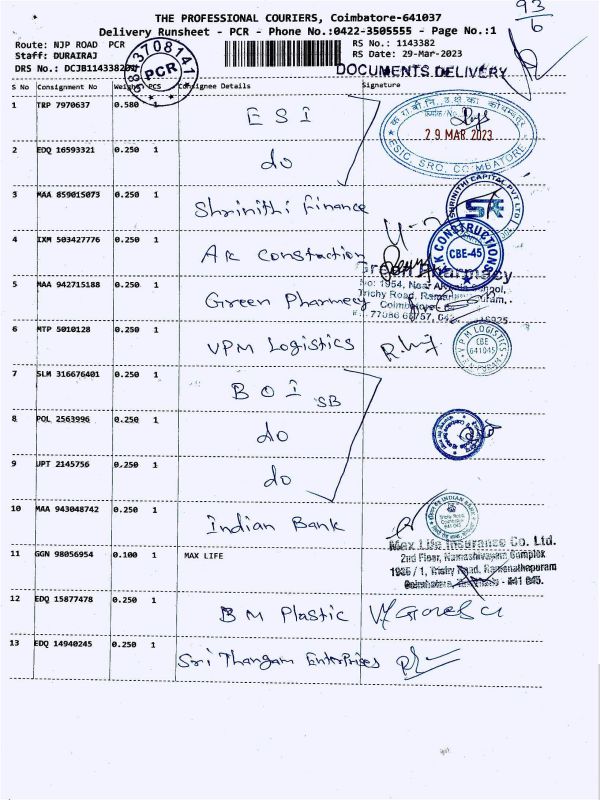 93
6
THE PROFESSIONAL COURIERS, Coimbatore-641037
Delivery Runsheet - PCR - Phone No.:0422-3505555 - Page No.:1
Route: NJP ROAD PCR RS No.: 1143382
Staff: DURAIRAJ RS Date: 29-Mar-2023
DRS No.: DCJB1143382 PCR DOCUMENTS DELIVERY
S No Consignment No Weight PCS Consignee Details Signature
1 TRP 7970637 0.580 1 ESI
29 MAR 2023
ESIC, SRO, COIMBATORE
2 EDQ 16593321 0.250 1 do
3 MAA 859015073 0.250 1 Shrinithi Finance
SHRINITHI CAPITAL PVT LTD
4 IXM 503427776 0.250 1 AK Constraction
A K CONSTRUCTIONS
CBE-45
5 MAA 942715188 0.250 1 Green Pharmecy
Green Pharmacy
No: 1954,
Trichy Road,
6 MTP 5010128 0.250 1 VPM Logistics
VPM LOGISTICS
CBE
641045
7 SLM 316676401 0.250 1 BOI SB
8 POL 2563996 0.250 1 do
9 UPT 2145756 0.250 1 do
10 MAA 943048742 0.250 1 Indian Bank
INDIAN BANK
Trichy Road,
Coimbatore
641 045
11 GGN 98056954 0.100 1 MAX LIFE
Max Life Insurance Co. Ltd.
2nd Floor, Namashivayam Complex
1936 / 1, Trichy Road, Ramanathapuram
Coimbatore, - 641 045.
12 EDQ 15877478 0.250 1 BM Plastic
13 EDQ 14940245 0.250 1 Sri Thangam Enterprises